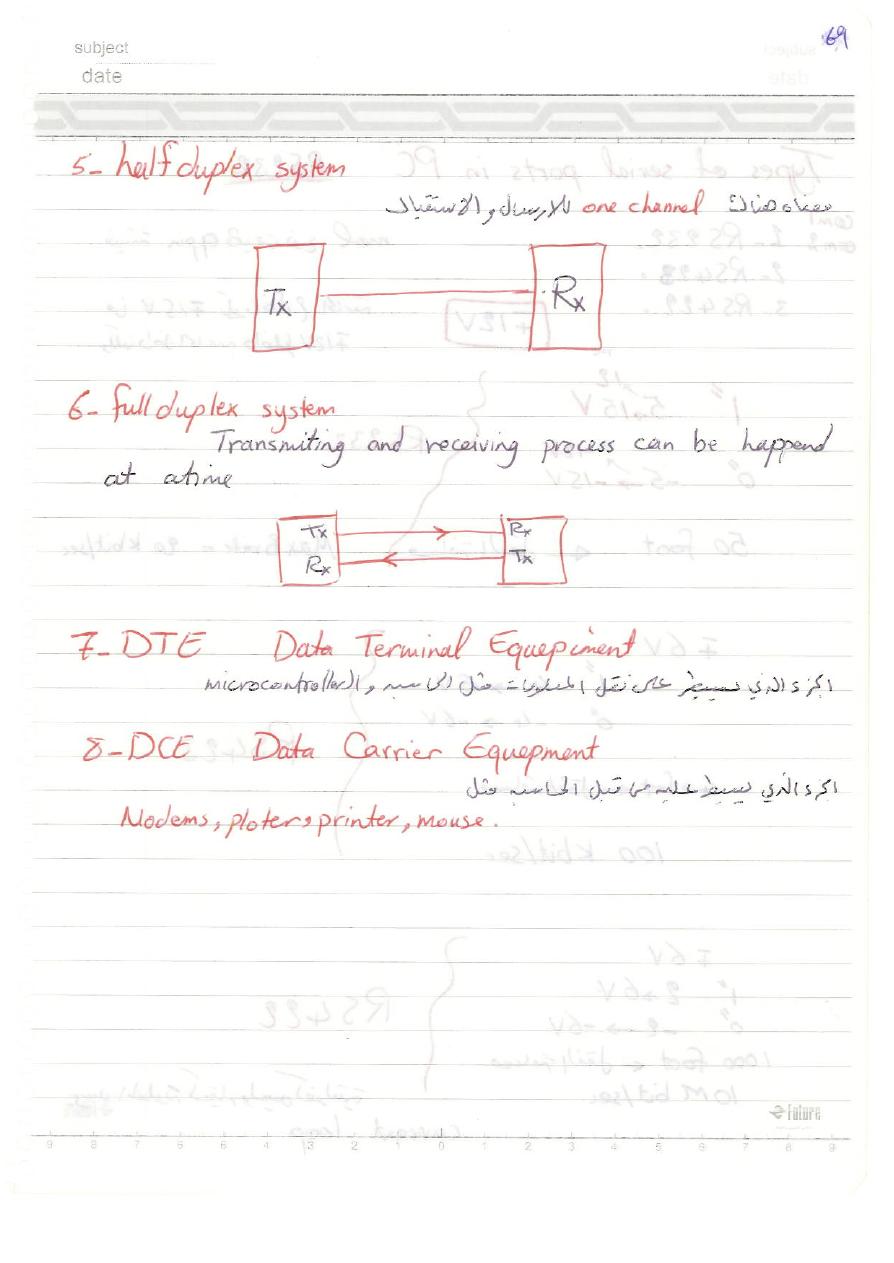 69
subject
date
5- half duplex system
معناه هناك one channel للارسال والاستقبال
Tx Rx
6- full duplex system
Transmiting and receiving process can be happend
at atime
Tx Rx
Rx Tx
7- DTE Data Terminal Equepiment
الجزء الذي يسيطر على نقل المعلومات مثل الحاسبه والـ microcontroller
8- DCE Data Carrier Equepment
الجزء الذي يسيطر عليه من قبل الحاسبه مثل
Modems, ploter, printer, mouse.
Future
9 8 7 6 5 4 3 2 1 0 1 2 3 4 5 6 7 8 9